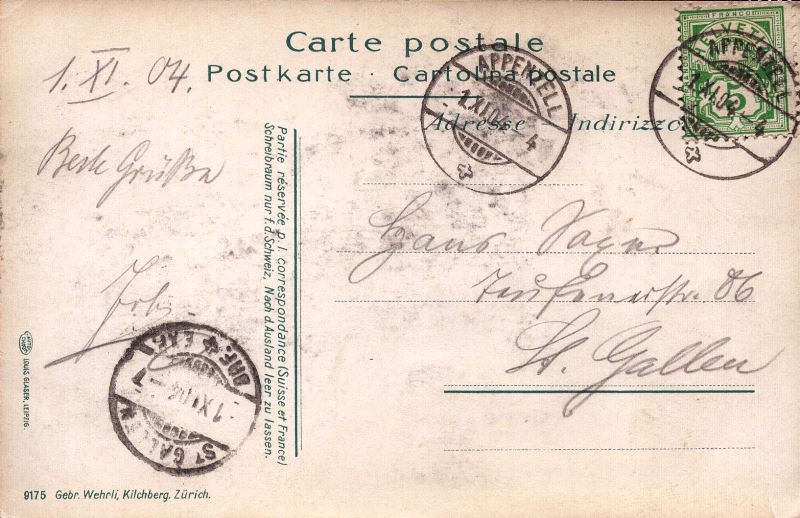 Carte postale
Postkarte - Cartolina postale
Adresse Indirizzo
FRANCO
HELVETIA
5
APPENZELL
1.XI.04 - 4
APPENZELL
1.XI.04 - 4
1. XI. 04.
Grüße
Partie réservée p. l. correspondance (Suisse et France)
Schreibraum nur f. d. Schweiz, Nach d. Ausland leer zu lassen.
Hans
Teufenerstr. 86
St. Gallen
BRF. EXP.
1.XI.04 - 7
ST GALLEN
LOUIS GLASER, LEIPZIG
9175 Gebr. Wehrli, Kilchberg, Zürich.